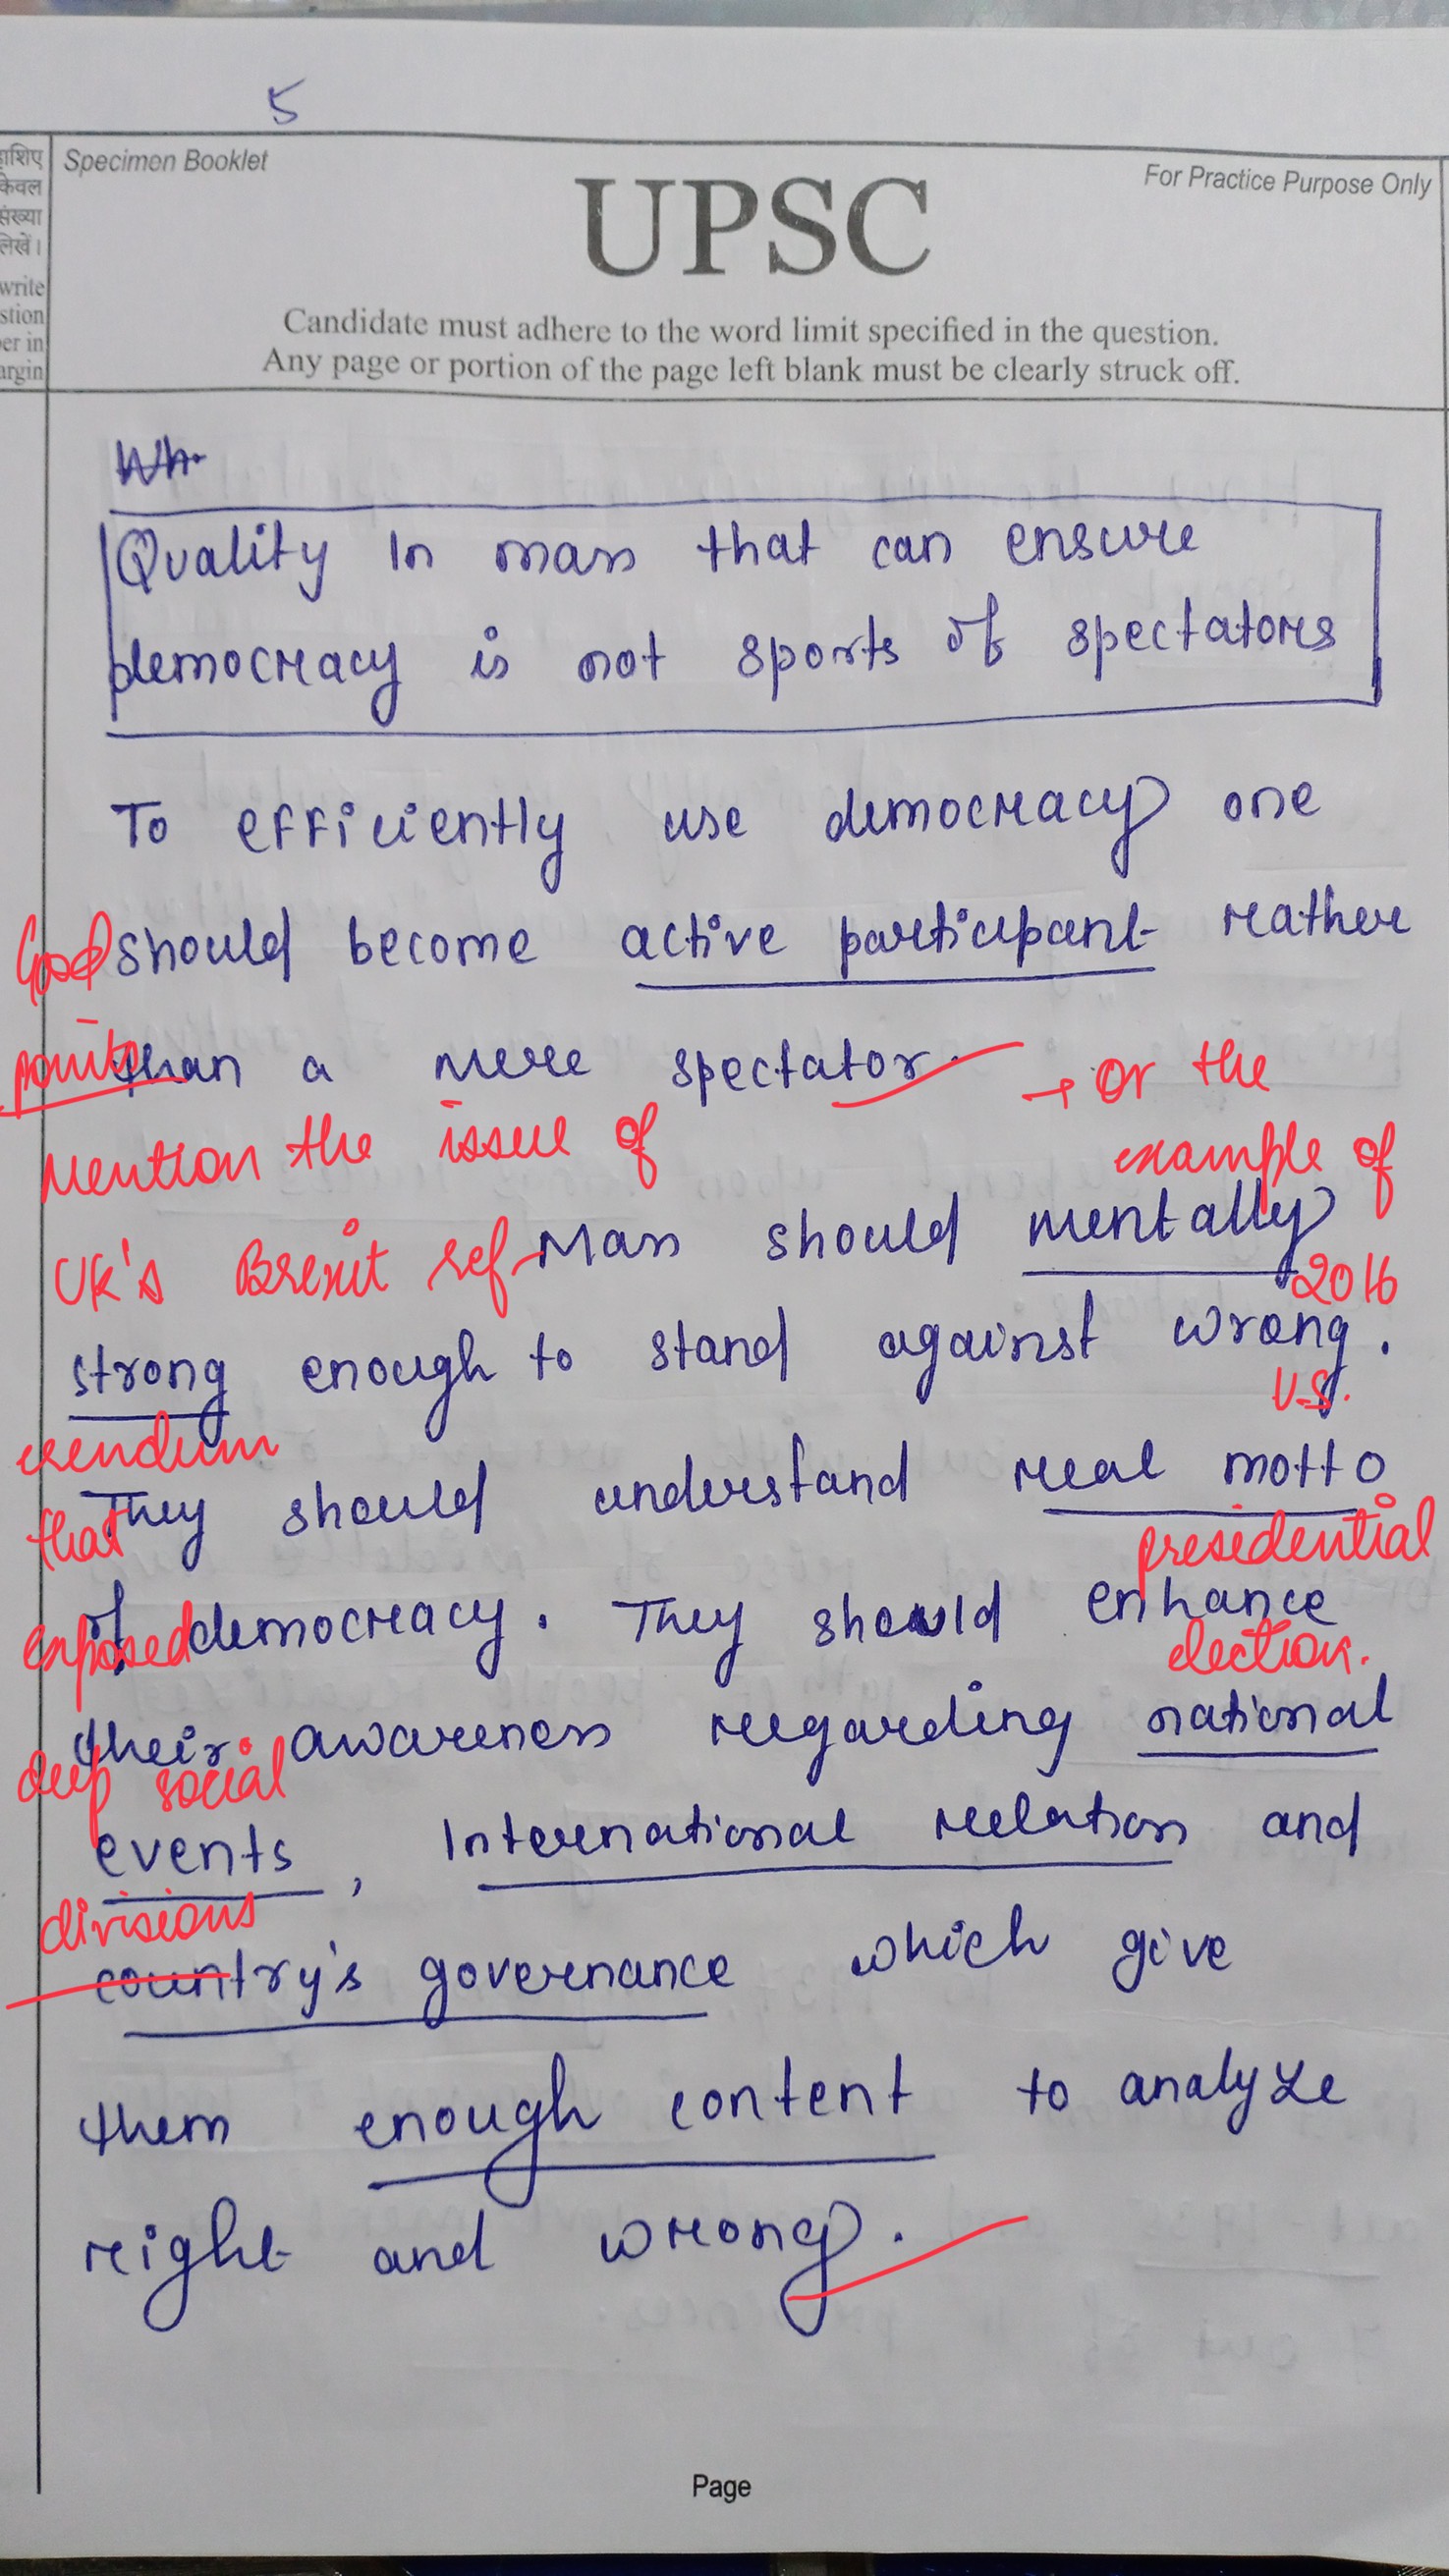 5
हाशिए
केवल
संख्या
लिखें।
write
stion
er in
argin
Specimen Booklet
For Practice Purpose Only
UPSC
Candidate must adhere to the word limit specified in the question.
Any page or portion of the page left blank must be clearly struck off.
Quality In mass that can ensure
democracy is not sports of spectators
To efficiently use democracy one
should become active participant rather
than a mere spectator.
Good
points
Mention the issue of
UK's Brexit ref
erendum
that
exposed
deep social
divisions
→ or the
example of
2016
U.S.
presidential
election.
Mass should mentally
strong enough to stand against wrong.
They should understand real motto
of democracy. They should enhance
their awareness regarding national
events, International relation and
country's governance which give
them enough content to analyze
right and wrong.
Page